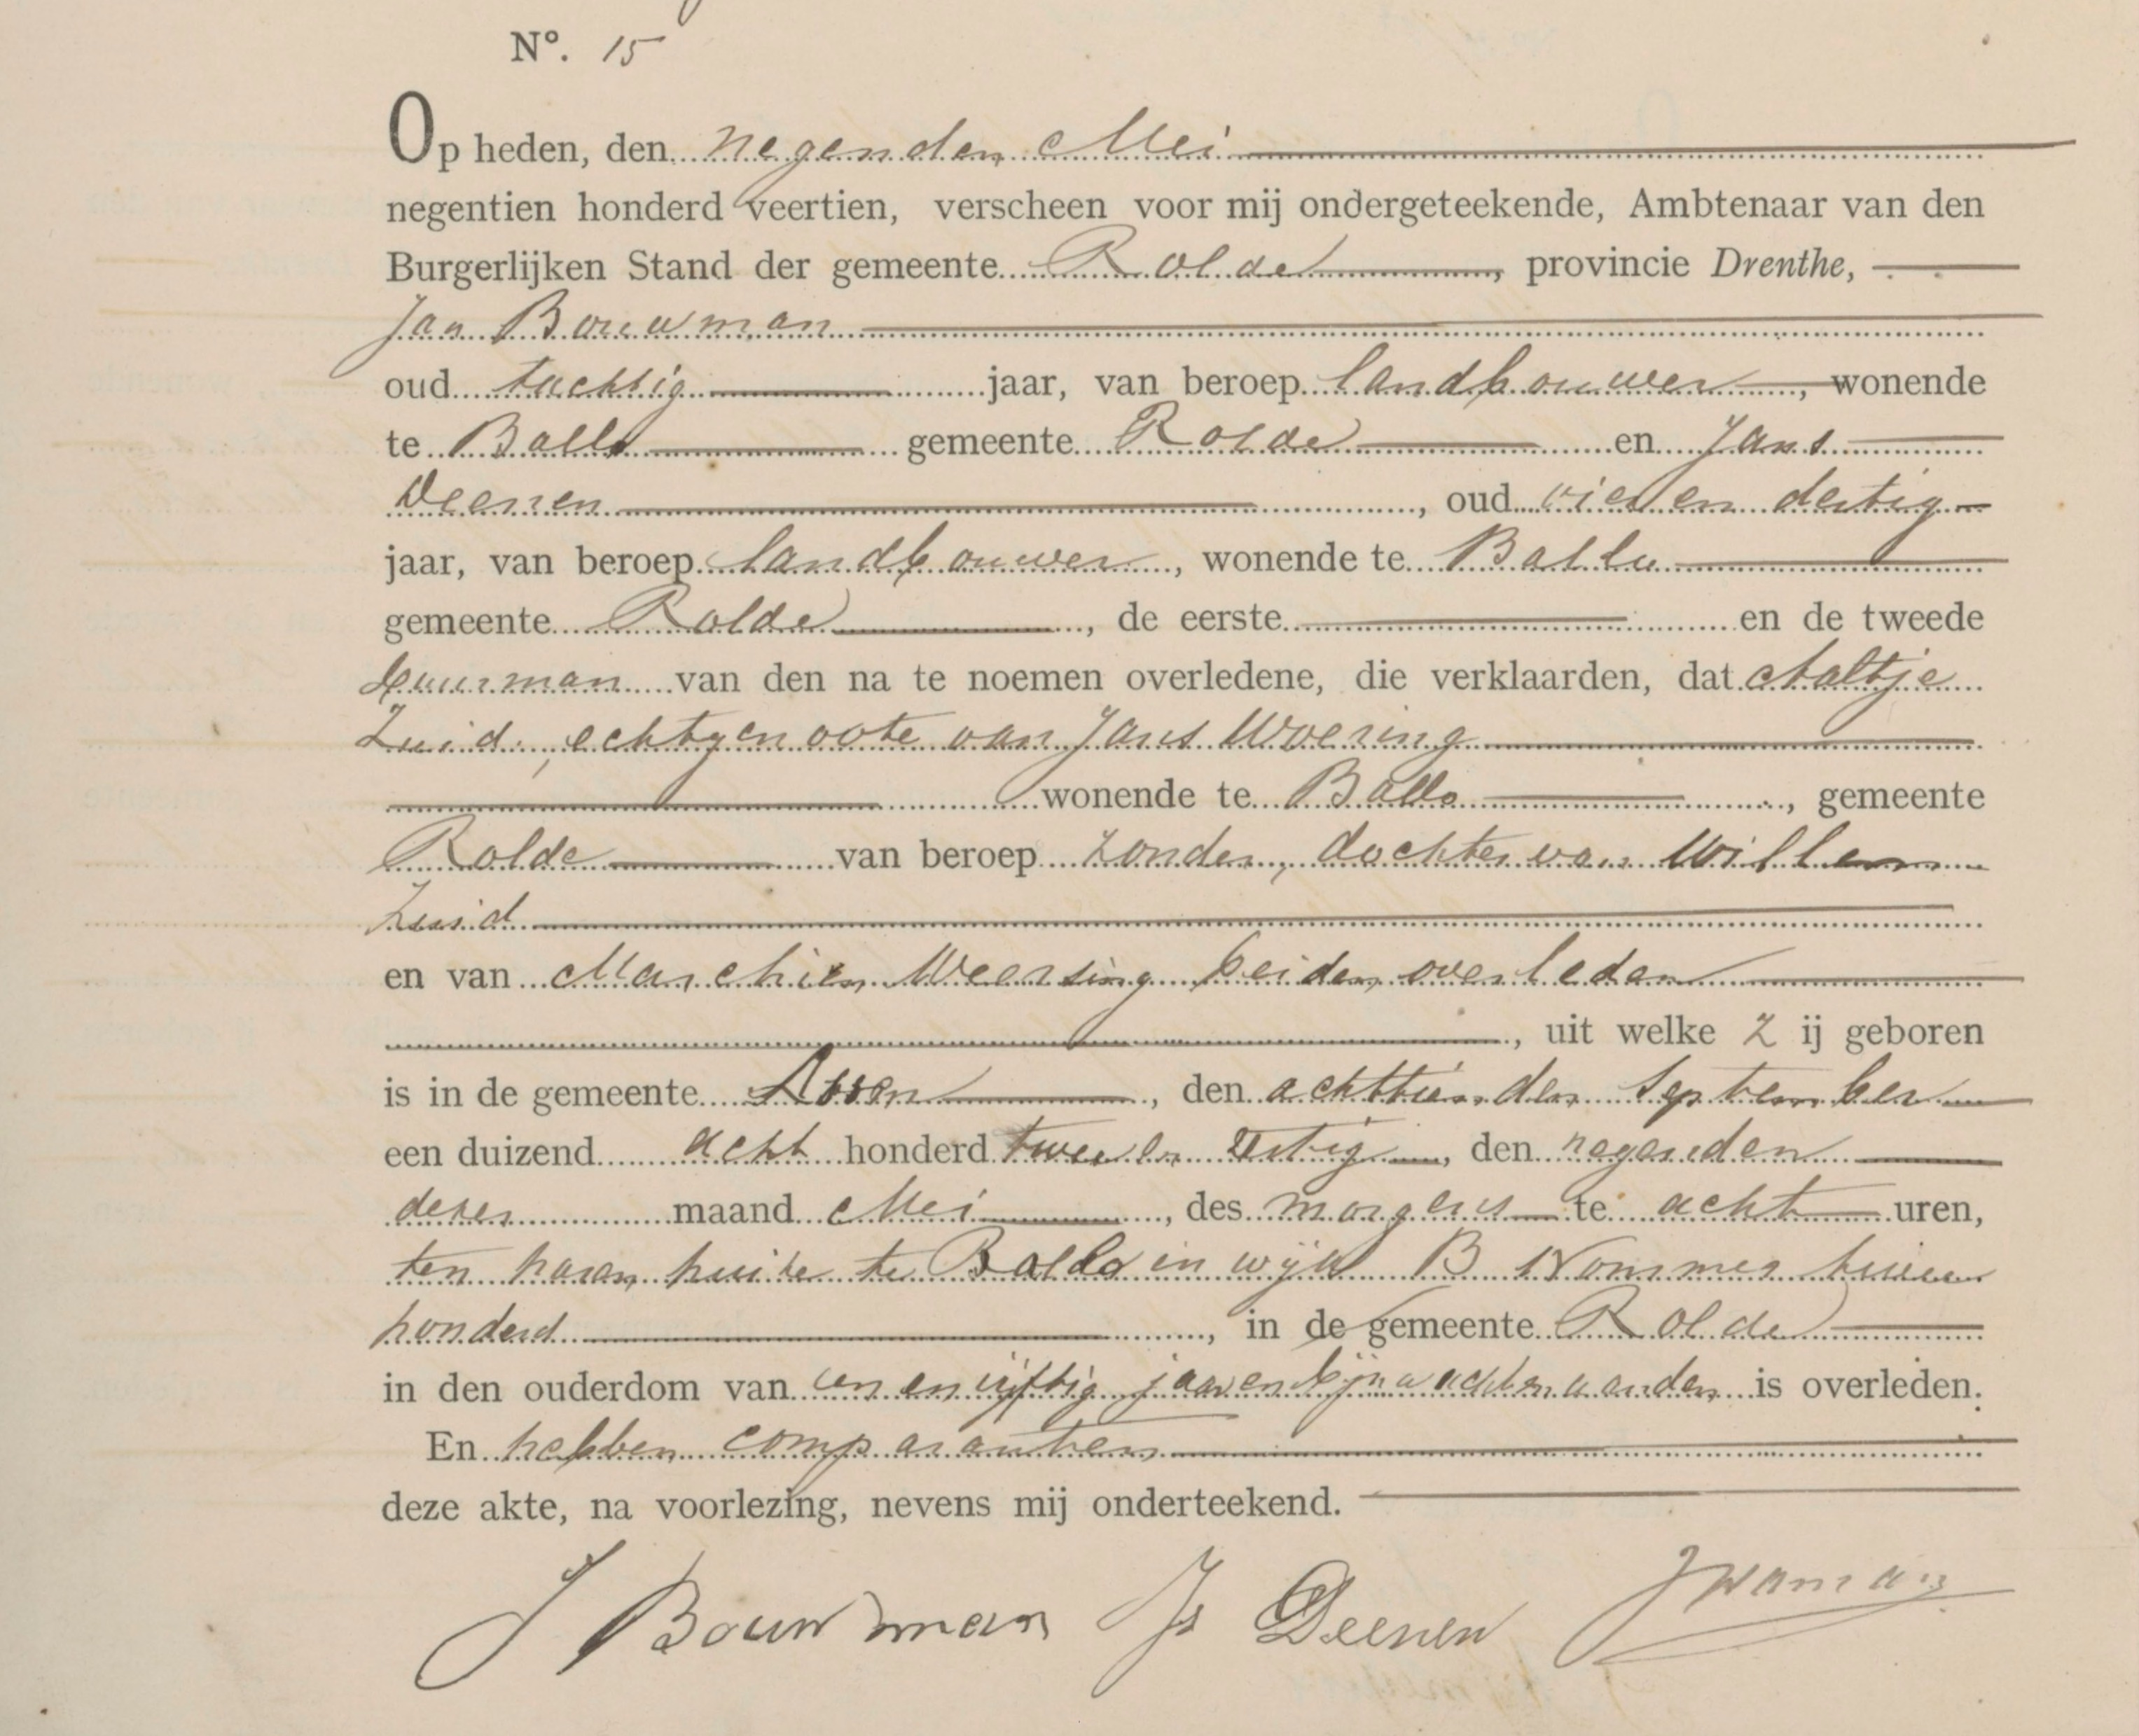 Nº. 15
Op heden, den negenden Mei
negentien honderd veertien, verscheen voor mij ondergeteekende, Ambtenaar van den
Burgerlijken Stand der gemeente Rolde, provincie Drenthe,
Jan Bouwman
oud tachtig jaar, van beroep landbouwer, wonende
te Ballo gemeente Rolde en Jans
Deenen, oud vier en dertig
jaar, van beroep landbouwer, wonende te Ballo
gemeente Rolde, de eerste en de tweede
buurman van den na te noemen overledene, die verklaarden, dat Aaltje
Zuid, echtgenoote van Jans Woering
wonende te Ballo, gemeente
Rolde van beroep zonder, dochter van Willem
Zuid
en van Marchien Weersing beiden overleden
, uit welke Zij geboren
is in de gemeente Assen, den achttienden September
een duizend acht honderd twee en zestig, den negenden
dezer maand Mei, des morgens te acht uren,
ten haren huize te Ballo in wijk B Nommer twee
honderd, in de gemeente Rolde
in den ouderdom van een en vijftig jaar en bijna acht maanden is overleden.
En hebben comparanten
deze akte, na voorlezing, nevens mij onderteekend.
J Bouwman Js Deenen